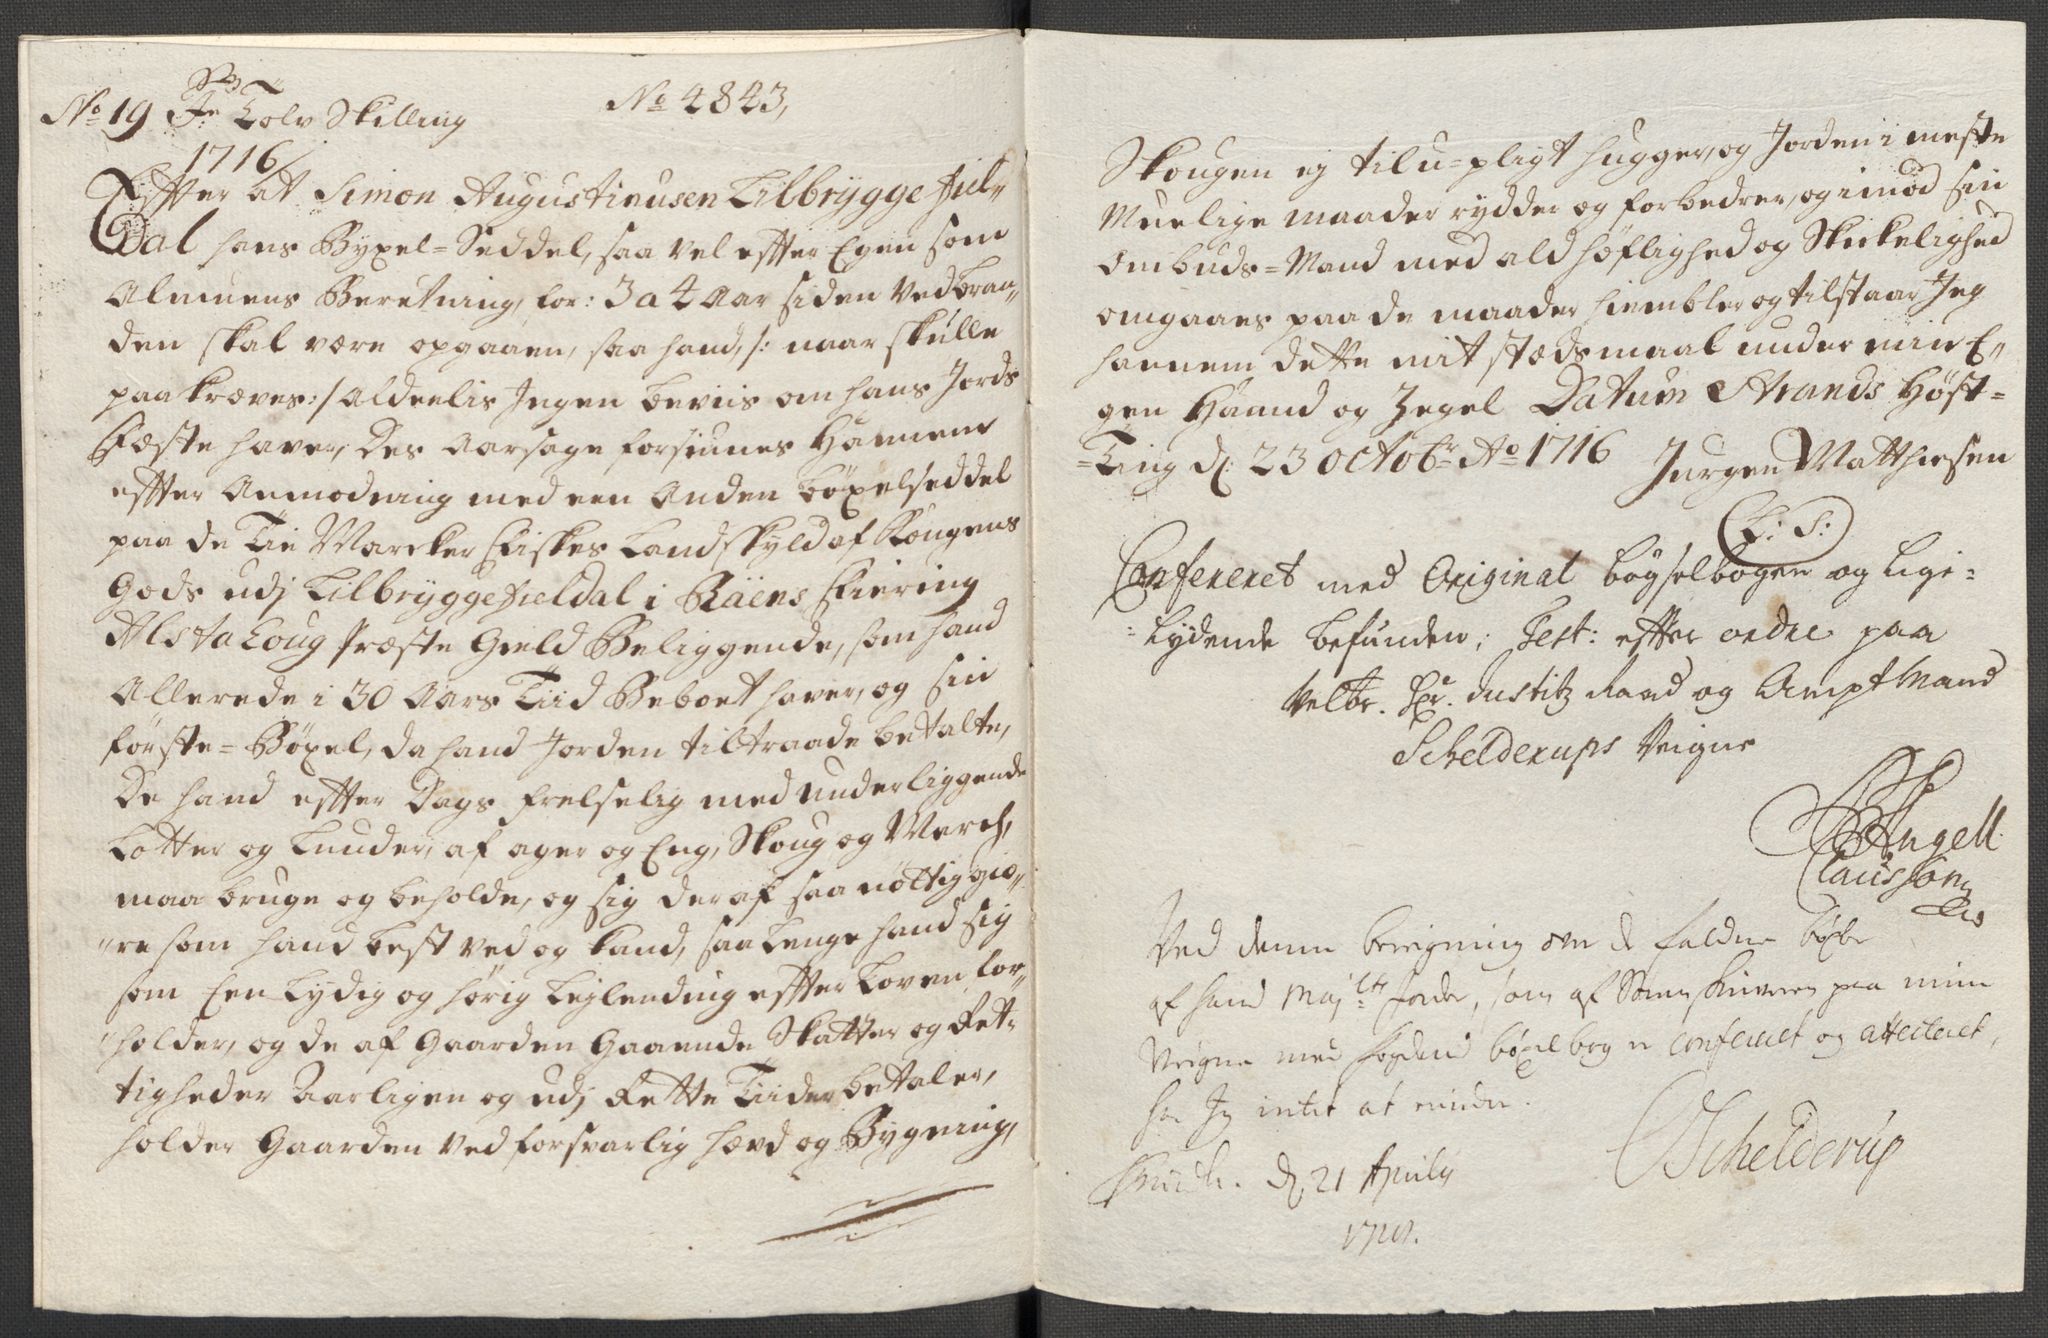 No 19 Tolv Skilling
No 4843,
1716/
Effter at Simon Augustinusen Tilbrygge fiel„
dal hans Byxel=Seddel, saa vel effter Egen som
Almuens Beretning, for: 3 a 4 Aar siden ved bran„
den skal være opgaaen, saa hand, /: naar skulle
paakræves:/ Aldeelis Ingen beviis om hans Jords
Fæste haver, Des Aarsage forsiunes Hannem
effter Anmodning med een Anden böxelseddel
paa de Tie Marcker Fiskes Landskyld af Kongens
Gods udj Tilbryggefieldal i Räens Fiering
Alstahoug Præste Gield Beliggende, som hand
Allerede i 30 Aars Tiid Beboet haver, og sin
förste=Böxel, da hand Jorden tiltraade betalte,
De hand effter Dags frelselig med underliggende
Lotter og Lunder, af ager og Eng, Skoug og March,
maa bruge og beholde, og sig deraf saa nöttig giö„
„re som hand best ved og kand, saa lenge hand sig
som Een Lydig og hörig Lejlending effter Loven for„
„holder, og de af Gaarden Gaaende Skatter og Ret„
tigheder Aarligen og udj Rette Tiider betaler,
holder Gaarden ved forsvarlig hævd og Bygning,
Skougen ej til u=pligt hugger, og Jorden i meste
Muelige maader rydder og forbedrer, og imod sin
Ombuds=Mand med ald höflighed og Skickelighed
omgaaes paa de maader hiembler og tilstaar Jeg
hannem dette mit stædsmaal under min E„
gen Haand og Zegel Datum Strands Höst=
=Ting d: 23 Octobr: Ao 1716 Jurgen Matthiesen
L: S:
Confereret med Original bögselbogen og lige=
=lydende befunden; Test: effter ordre paa
Velbr. Hr. Justitz Raad og Amptmand
Schelderups Veigne
Angell
Claussøn
Ved denne beregning over de faldne böxler
af hans Majts Jorder, som af Sorenskriveren paa mine
Veigne med fogdens böxelbog er confereret og attesteret,
har Jeg intet at erindre.
d 21 Aprilis
Schelderup